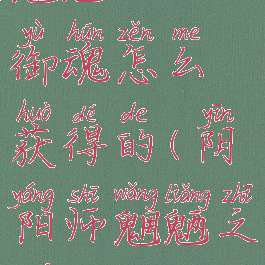 yù hún zěn me
御魂怎么
huò dé de yīn
获得的(阴
yáng shī wǎng liǎng zhī
阳师魍魉之